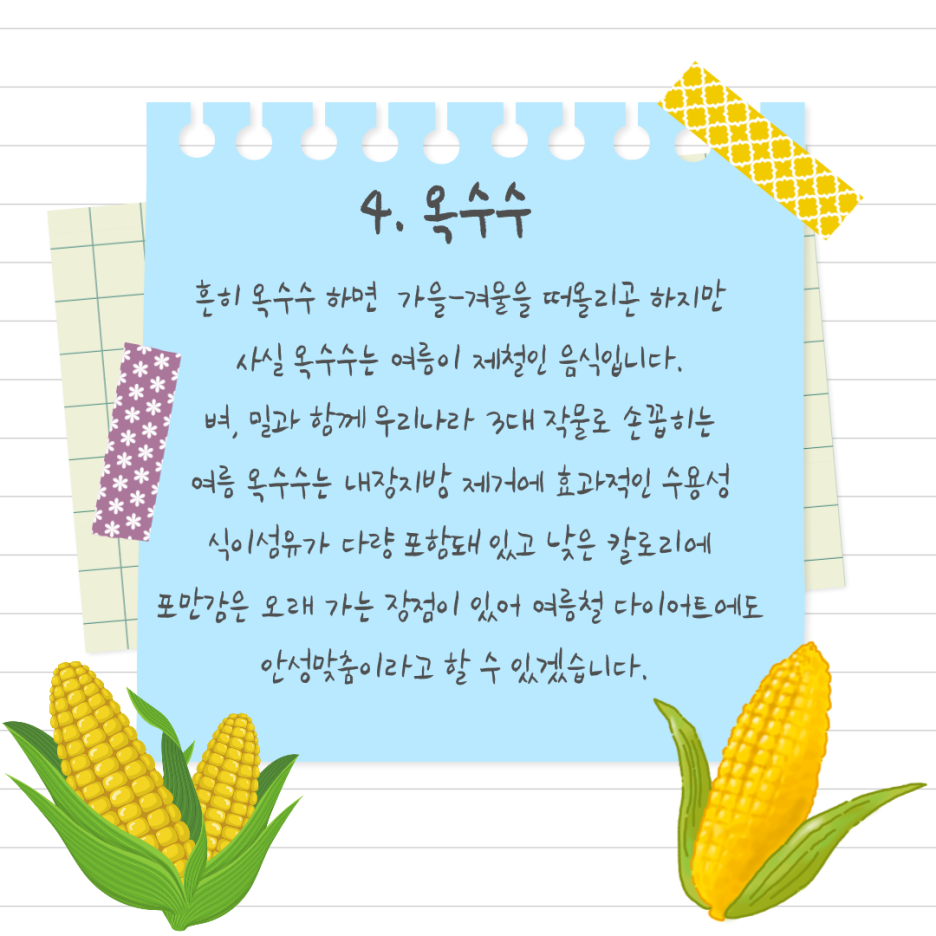 4. 옥수수
흔히 옥수수 하면 가을-겨울을 떠올리곤 하지만
사실 옥수수는 여름이 제철인 음식입니다.
벼, 밀과 함께 우리나라 3대 작물로 손꼽히는
여름 옥수수는 내장지방 제거에 효과적인 수용성
식이섬유가 다량 포함돼 있고 낮은 칼로리에
포만감은 오래 가는 장점이 있어 여름철 다이어트에도
안성맞춤이라고 할 수 있겠습니다.